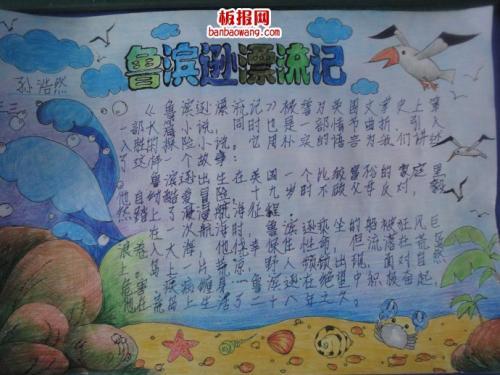 板报网
banbaowang.com
鲁滨逊漂流记
孙浩然
《鲁滨逊漂流记》被誉为英国文学史上第
一部长篇小说，同时也是一部情节曲折，引人
入胜的探险小说。它用朴实的语言为我们讲述
了这样一个故事：
鲁滨逊出生在英国一个比较富裕的家庭里
他酷爱冒险，十九岁时不顾父母反对，毅
然踏上了漫漫航海征程。
在一次航海时，鲁滨逊乘坐的船被狂风巨
浪卷入大海，他侥幸保住性命，但流落在荒岛
上。岛上一片荒凉，野人频频出现，面对自然
鲁滨逊在绝望中积极奋起，
在荒岛上生活了二十八年之久。